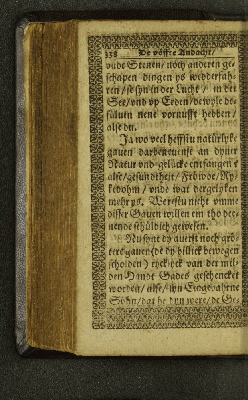 338 De vöffte Andacht/
vnde Stenen/ noch anderen ge-
schapen dingen ys wedderfah-
ren/ se syn in der Lucht/ in der
See/ vnd vp Erden/ dewyle de-
sülven nene vornufft hebben/
alse du.
Ja wo veel hefftu natürlyke
gauen darbeneuenst an dyner
Natur vnd gelücke entfangen/
alse/ gesundtheit/ Fröwde/ Ry-
kedohm/ vnde wat dergelyken
mehr ys. Werestu nicht vmme
disser Gauen willen em tho dee-
nende schüldich gewesen.
Nu synt dy auerst noch grö-
tere gauen (de dy billick bewegen
scholden) ryklyck van der mil-
den Handt Gades geschencket
worden/ alse/ syn Eingebahrne
Sohn/ dat he dyn were/ de Ge-